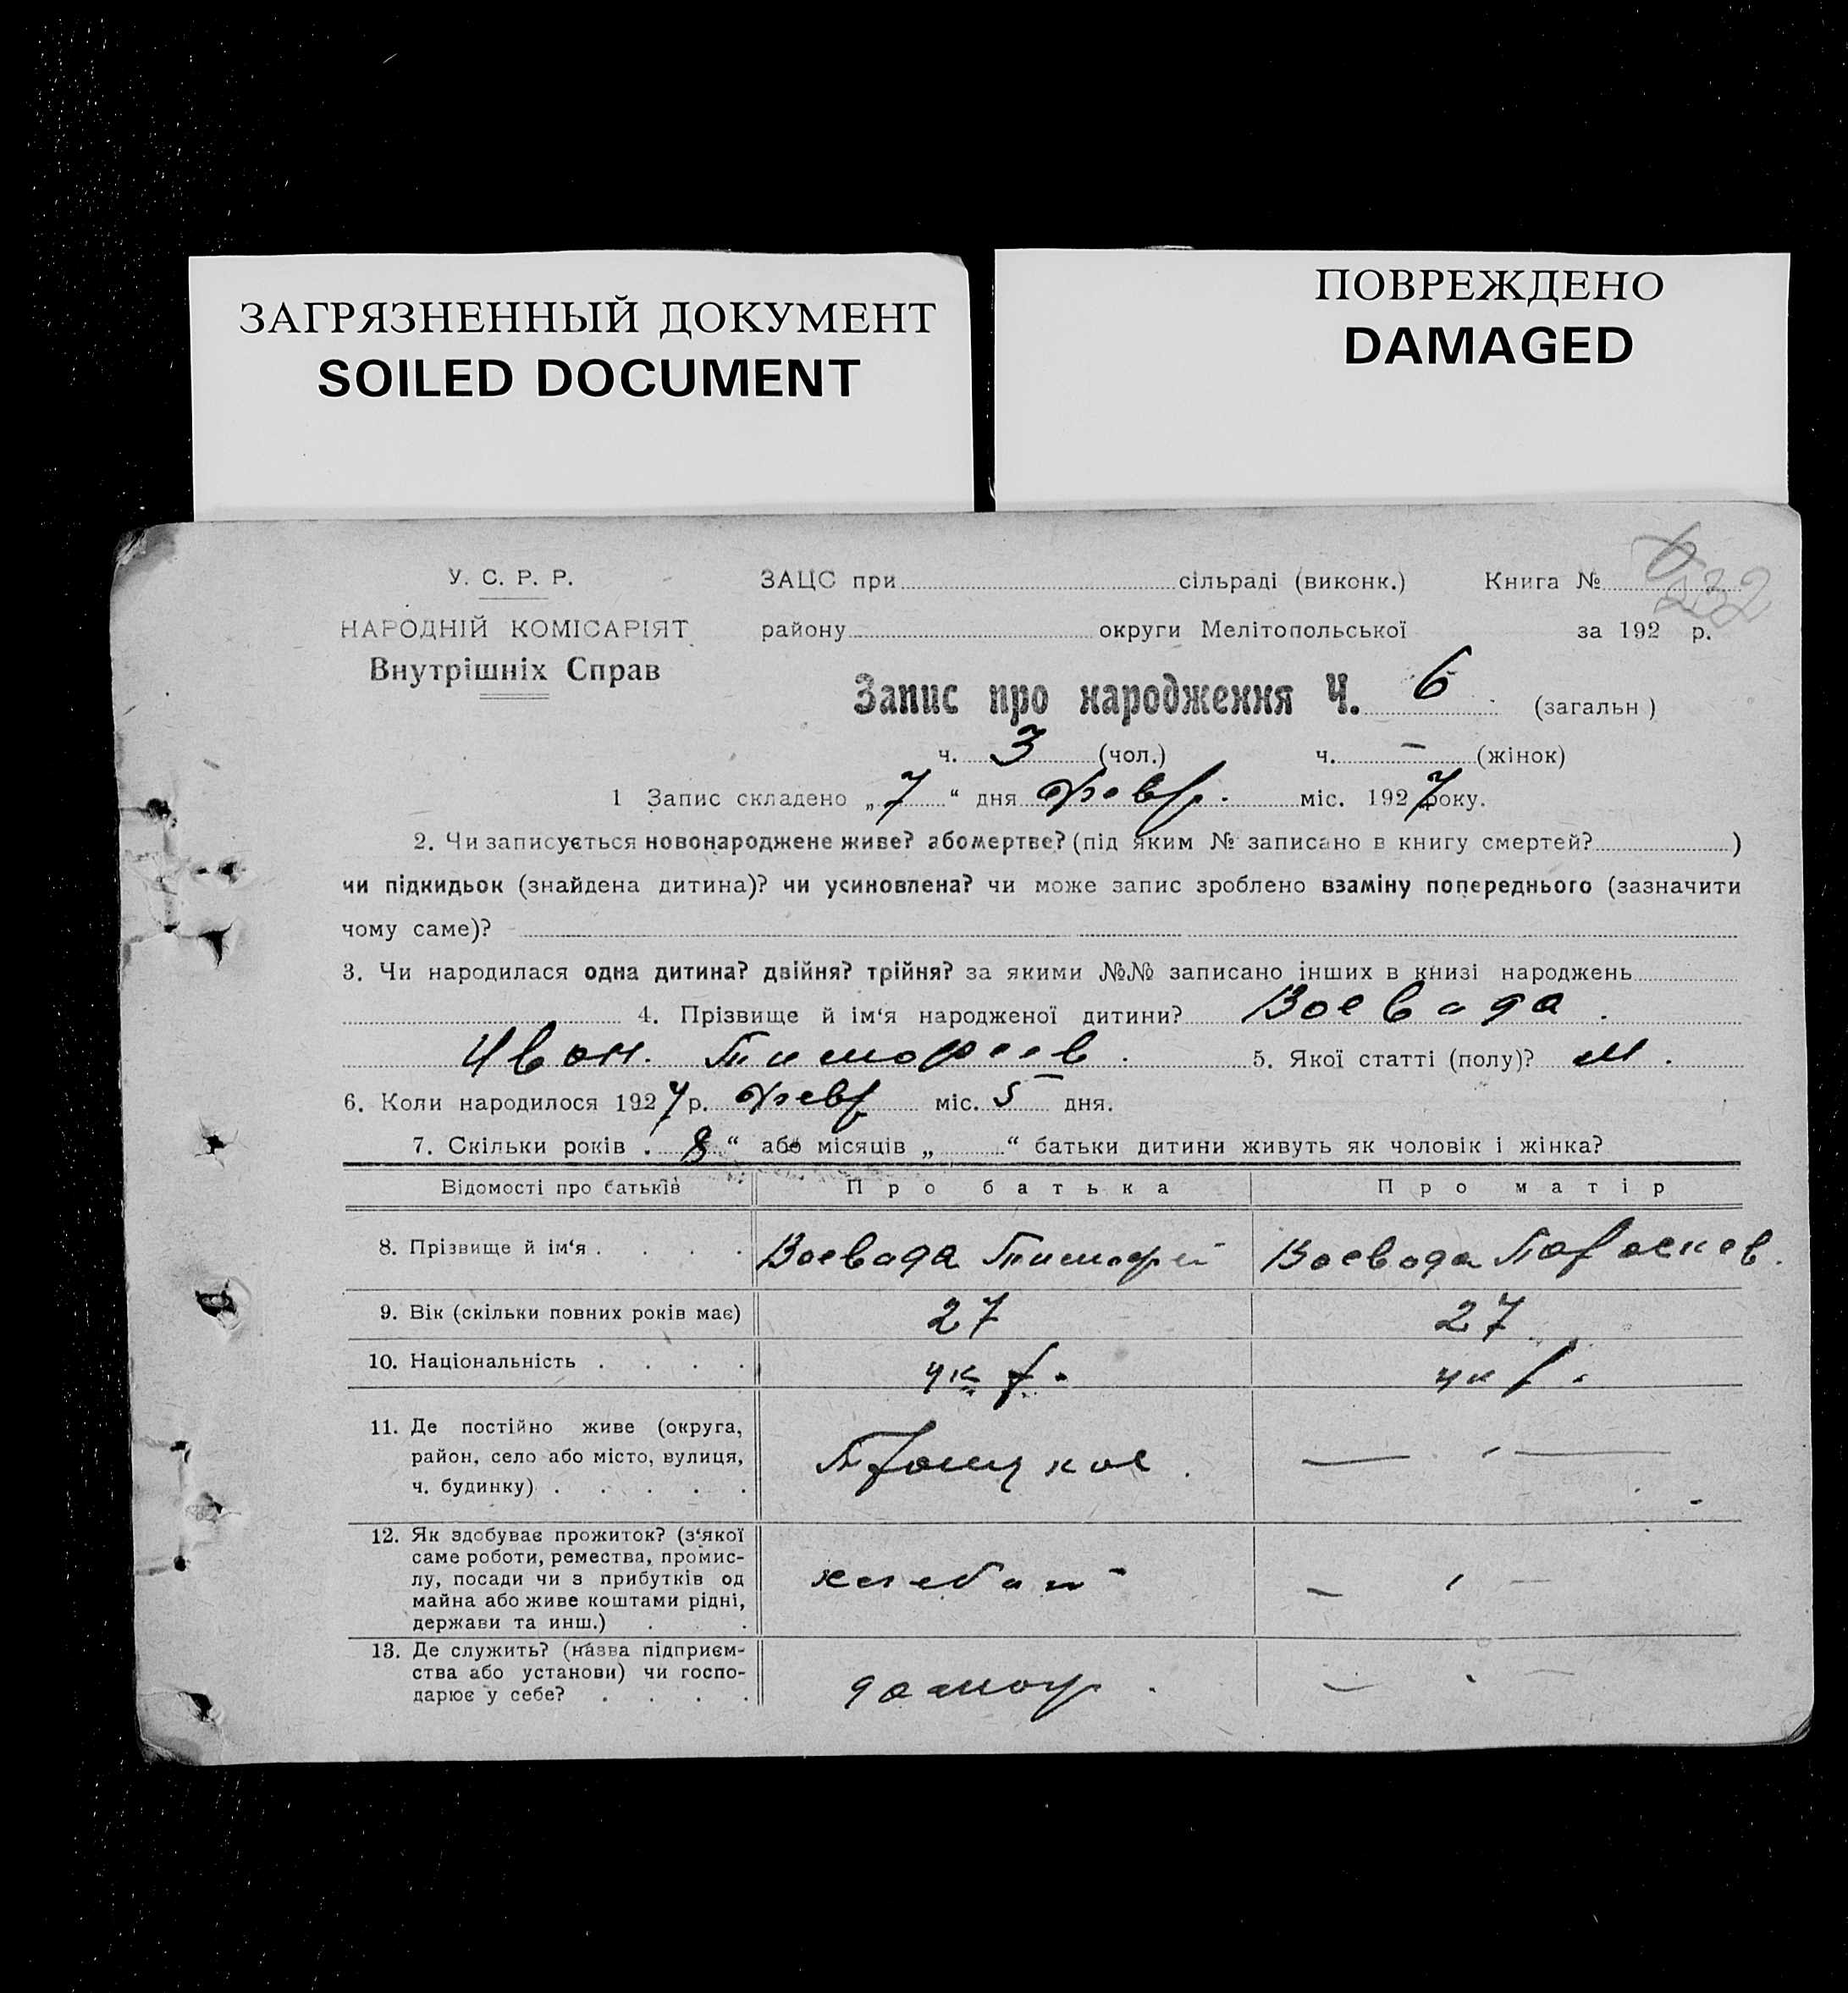 ЗАГРЯЗНЕННЫЙ ДОКУМЕНТ
SOILED DOCUMENT
ПОВРЕЖДЕНО
DAMAGED
232
У. С. Р. Р.
НАРОДНІЙ КОМІСАРІЯТ
Внутрішніх Справ
ЗАЦС при сільраді (виконк.) Книга №
району округи Мелітопольської за 192 р.
Запис про народження Ч. 6 (загальн)
ч. 3 (чол.) ч. – (жінок)
1 Запис складено „7“ дня февр. міс. 1927 року.
2. Чи записується новонароджене живе? або мертве? (під яким № записано в книгу смертей? )
чи підкидьок (знайдена дитина)? чи усиновлена? чи може запис зроблено взаміну попереднього (зазначити
чому саме)?
3. Чи народилася одна дитина? двійня? трійня? за якими №№ записано інших в книзі народжень
4. Прізвище й ім‘я народженої дитини? Воевода.
Иван. Тимофеев. 5. Якої статті (полу)? м.
6. Коли народилося 1927 р. февр міс. 5 дня.
7. Скільки років . 8 “ або місяців „ “ батьки дитини живуть як чоловік і жінка?
Відомості про батьків Про батька Про матір
8. Прізвище й ім‘я . . . . Воевода Тимофей Воевода
9. Вік (скільки повних років має) 27 27
10. Національність . . . . укр. укр.
11. Де постійно живе (округа,
район, село або місто, вулиця,
ч. будинку) . . . . . Троицкое. — ʼ —
12. Як здобуває прожиток? (з‘якої
саме роботи, ремества, промис-
лу, посади чи з прибутків од
майна або живе коштами рідні,
держави та инш.) . .
– ʼ –
13. Де служить? (назва підприєм-
ства або установи) чи госпо-
дарює у себе? . . . .
– ʼ –